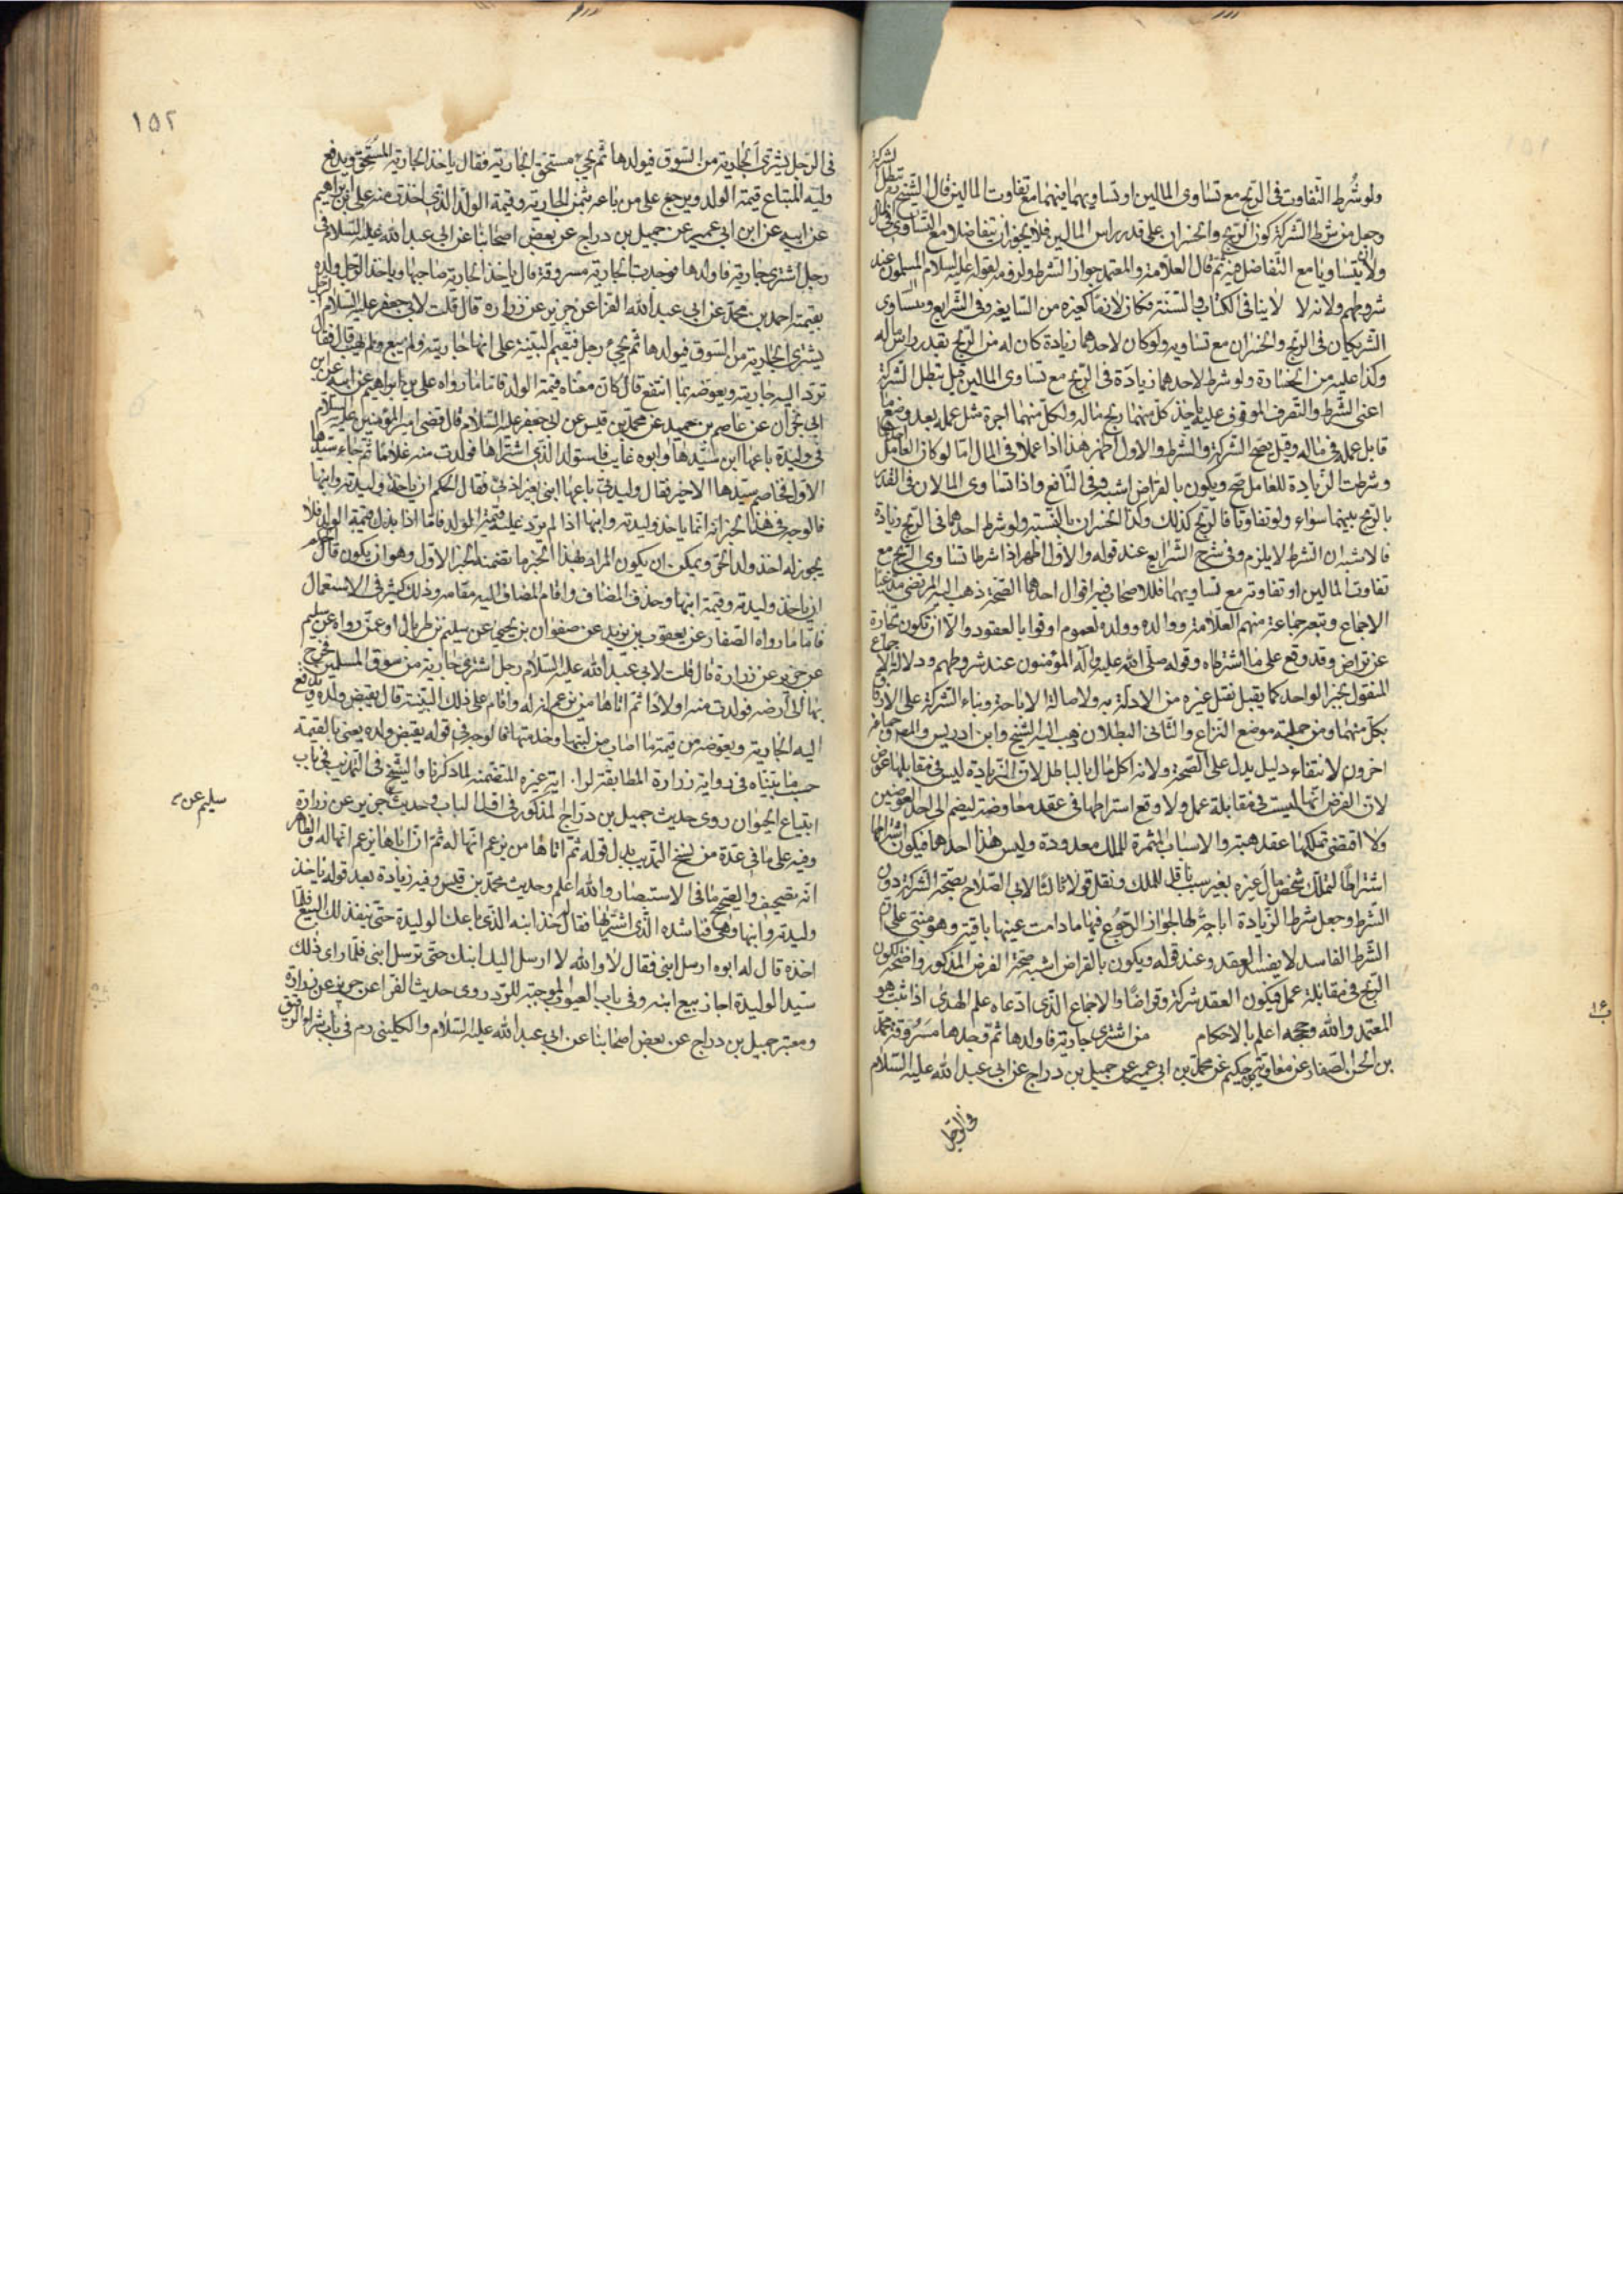 ولو شرط التفاوت فى الربح مع تساوى المالين او تساويهما فيهما مع تفاوت المالين قال الشيخ تبطل الشركة
وجعل من شرط الشركة كون الربح والخسران على قدر راس المالين فلا يجوز ان يتفاضلا مع التساوى فى المال
ولا ان يتساويا مع التفاضل فيه ثم قال العلامة والمعتمد جواز الشرط ولزومه لقوله عليه السلام المسلمون عند
شروطهم ولانه لا لا ينافى الكتاب والسنة فكان لازما كغيره من السايغة وفى الشرايع ويتساوى
الشريكان فى الربح والخسران مع تساويه ولو كان لاحدهما زيادة كان له من الربح بقدر راس ماله
وكذا عليه من الخسارة ولو شرط لاحدهما زيادة فى الربح مع تساوى المالين قيل تبطل الشركة
اعنى الشرط والتصرف الموقوف عليه ياخذ كل منهما ربح ماله ولكل منهما اجرة مثل عمله بعد وضع ما
قابل عمله فى ماله وقيل تصح الشركة والشرط والاول اظهر هذا اذا عملا فى المال اما لو كان العامل احدهما
وشرطت الزيادة للعامل صح ويكون بالقراض اشبه وفى النافع واذا تساوى المالان فى القدر
بالربح بينهما سواء ولو تفاوتا فالربح كذلك وكذا الخسران بالنسبة ولو شرط احدهما فى الربح زيادة
فالاشبه ان الشرط لا يلزم وفى شرح الشرايع عند قوله والاول اظهر اذا شرطا تساوى الربح مع
تفاوت المالين او تفاوته مع تساويهما فللاصحاب فيه اقوال احدها الصحة ذهب اليه المرتضى مدعيا
الاجماع وتبعه جماعة منهم العلامة ووالده وولده لعموم اوفوا بالعقود والا ان تكون تجارة
عن تراض وقد وقع على ما اشترطاه وقوله صلى الله عليه وآله المؤمنون عند شروطهم ودلالة الاجماع
المنقول بخبر الواحد كما يقبل نقل غيره من الادلة به ولاصالة الاباحة وبناء الشركة على الارفاق
بكل منهما ومن جملته موضع النزاع والثانى البطلان ذهب اليه الشيخ وابن ادريس والمص وجماعة
اخرون لانتفاء دليل يدل على الصحة ولانه اكل مال بالباطل لان الزيادة ليس فى مقابلها عوض
لان الفرض انها ليست فى مقابلة عمل ولا وقع اشتراطها فى عقد معاوضة ليضم الى احد العوضين
ولا اقتضى تملكها عقد هبة والاسباب المثمرة للملك معدودة وليس هذا احدهما فيكون اشتراطها
اشتراطا لتملك شخص مال غيره بغير سبب ناقل للملك ونقل قولا ثالثا لابى الصلاح بصحة الشركة دون
الشرط وجعل شرط الزيادة اباحة لها لجواز الرجوع فيها ما دامت عينها باقية وهو مبنى على ان
الشرط الفاسد لا يفسد العقد وعند قوله ويكون بالقراض اشبه صحة الفرض المذكور واضحة لكون
الربح فى مقابلة عمل فيكون العقد شركة وقراضا والاجماع الذى ادعاه علم الهدى اذا ثبت هو
المعتمد والله وحججه اعلم بالاحكام من اشترى جارية فاولدها ثم وجدها مسروقة محمد
بن الحسن الصفار عن معاوية بن حكيم عن محمد بن ابى عمير عن جميل بن دراج عن ابى عبد الله عليه السلام
فى الرجل
١٥٢
فى الرجل يشترى الجارية من السوق فيولدها ثم يجىء مستحق الجارية فقال ياخذ الجارية المستحق ويدفع
وليه المبتاع قيمة الولد ويرجع على من باعه بثمن الجارية وقيمة الولد الذى اخذت منه على بن ابراهيم
عن ابيه عن ابن ابى عمير عن جميل بن دراج عن بعض اصحابنا عن ابى عبد الله عليه السلام فى
رجل اشترى جارية فاولدها فوجدت الجارية مسروقة قال ياخذ الجارية صاحبها وياخذ الرجل ولده
بقيمته احمد بن محمد عن ابى عبد الله الفرا عن حريز عن زرارة قال قلت لابى جعفر عليه السلام الرجل
يشترى الجارية من السوق فيولدها ثم يجىء رجل فيقيم البينة على انها جاريته ولم يبع ولم يهب قال فقال
ترد اليه جاريته ويعوضه بما انتفع قال كان معناه قيمة الولد فاما ما رواه على بن ابراهيم عن ابيه عن ابن
ابى نجران عن عاصم بن حميد عن محمد بن قيس عن ابى جعفر عليه السلام قال قضى امير المؤمنين عليه السلام
فى وليدة باعها ابن سيدها وابوه غايب فاستولدها الذى اشتراها فولدت منه غلاما ثم جاء سيدها
الاول فخاصم سيدها الاخير فقال وليدتى باعها ابنى بغير اذنى فقال الحكم ان ياخذ وليدته وابنها
فالوجه فى هذا الخبر انه انما ياخذ وليدته وابنها اذا لم يرد عليه قيمة الولد فاما اذا بذل قيمة الولد فلا
يجوز له اخذ ولد الحر ويمكن ان يكون المراد بهذا الخبر ما تضمنه الخبر الاول وهو ان يكون قال الحكم
ان ياخذ وليدته وقيمة ابنها وحذف المضاف واقام المضاف اليه مقامه وذلك كثير فى الاستعمال
فاما ما رواه الصفار عن يعقوب بن يزيد عن صفوان بن يحيى عن سليم الطربال او عمن رواه عن سليم
عن حريز عن زرارة قال قلت لابى عبد الله عليه السلام رجل اشترى جارية من سوق المسلمين فخرج
بها الى ارضه فولدت منه اولادا ثم اتاها من يزعم انها له واقام على ذلك البينة قال يقبض ولده ويدفع
اليه الجارية ويعوضه من قيمة ما اصاب من لبنها وخدمتها فالوجه فى قوله يقبض ولده يعنى بالقيمة
حسب ما بيناه فى رواية زرارة المطابقة غيره المتضمنه لما ذكرنا والشيخ فى التهذيب فى باب
ابتياع الحيوان روى حديث جميل بن دراج المذكور فى اول الباب وحديث حريز عن زرارة
وفيه على ما فى عدة من نسخ التهذيب بدل قوله ثم اتاها من يزعم انها له ثم ان اباها يزعم انها له والظاهر
انه تصحيف والصحيح ما فى الاستبصار والله اعلم وحديث محمد بن قيس وفيه زيادة بعد قوله ياخذ
وليدته وابنها وهى فناشده الذى اشتراها فقال له خذ ابنه الذى باعك الوليدة حتى ينفذ لك البيع فلما
اخذه قال له ابوه ارسل ابنى فقال لا والله لا ارسل اليك ابنك حتى ترسل ابنى فلما راى ذلك
سيد الوليدة اجاز بيع ابنه وفى باب العيوب الموجبة للرد روى حديث الفرا عن حريز عن زرارة
ومعتبر جميل بن دراج عن بعض اصحابنا عن ابى عبد الله عليه السلام والكلينى ره فى باب شراء الرقيق
سليم عن